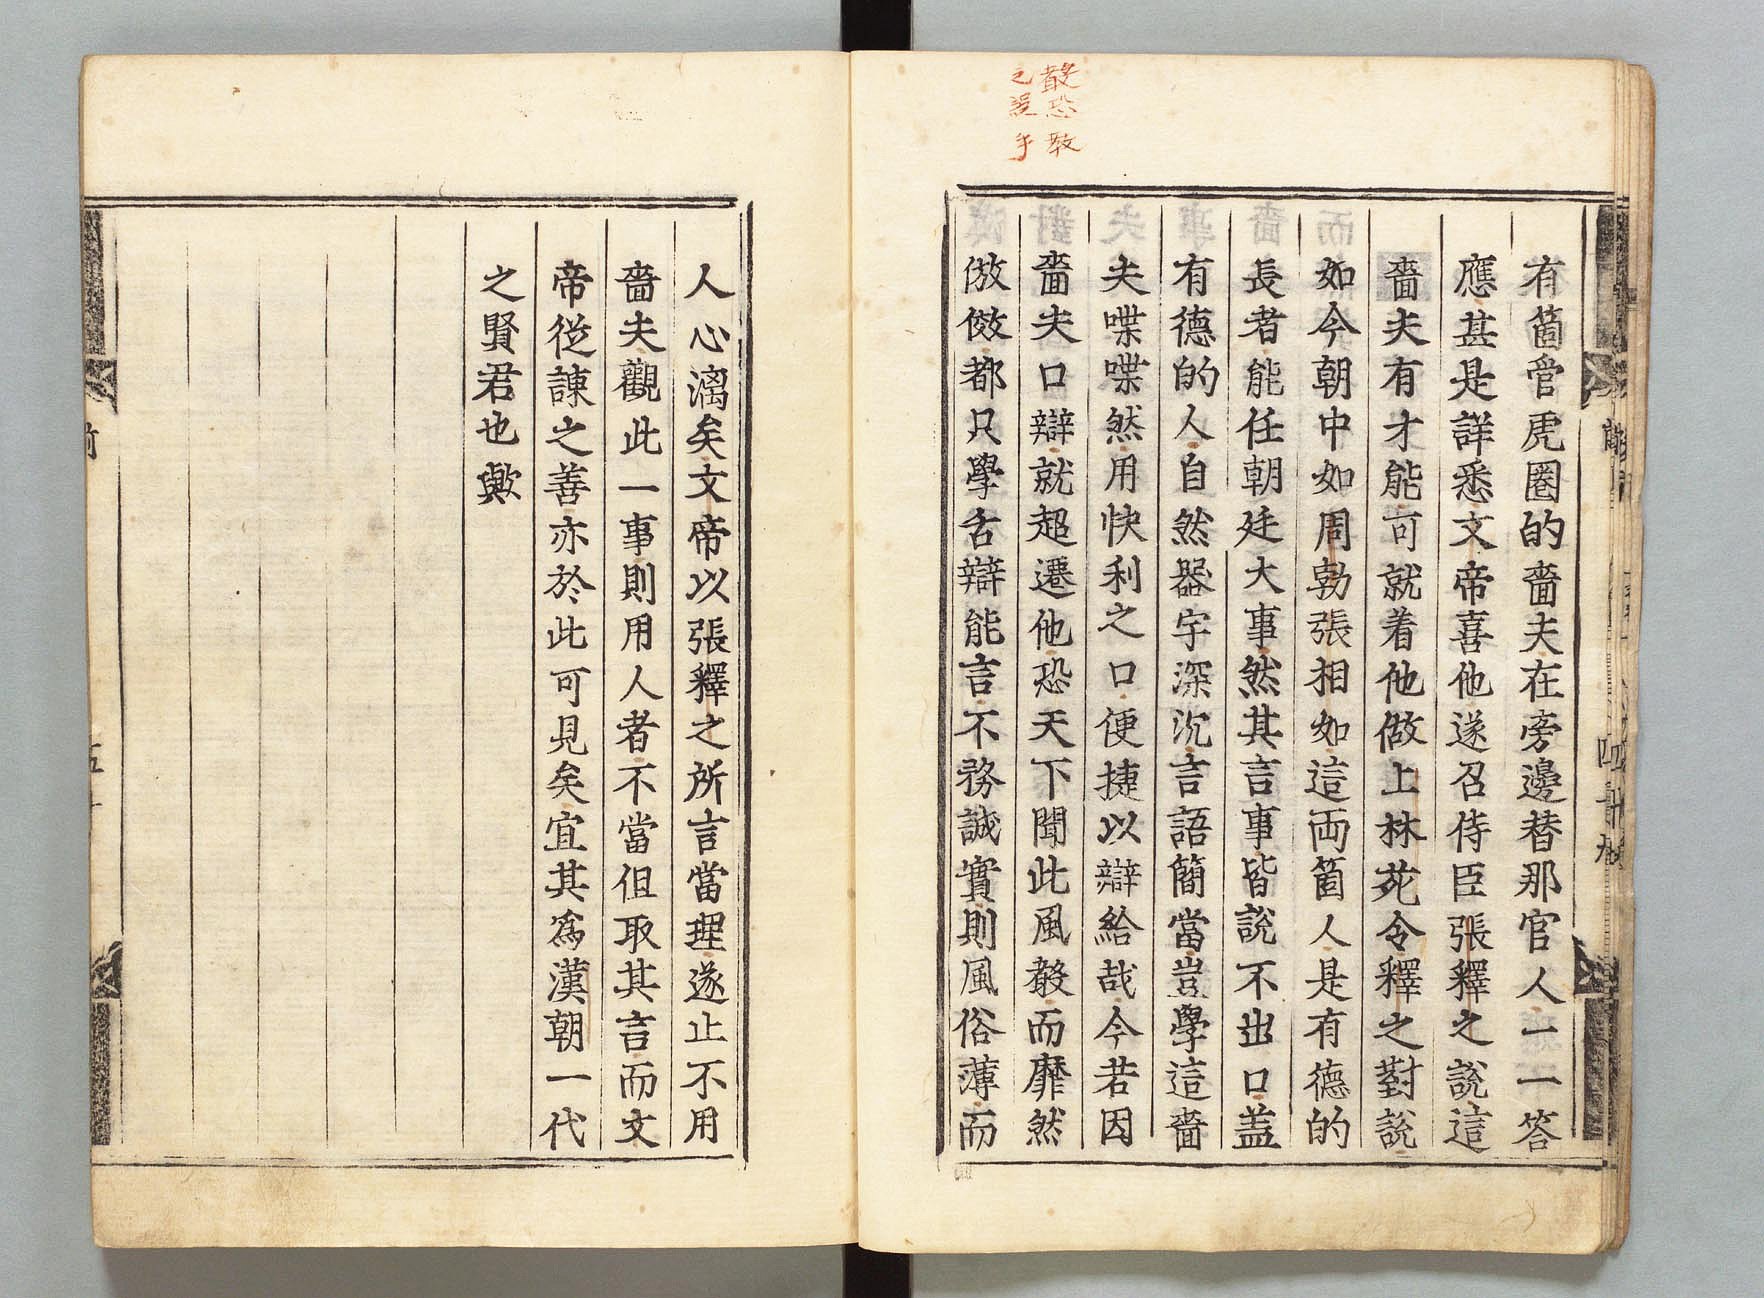 散恐教
之誤乎
有箇管虎圈的嗇夫在旁邊替那官人一一答
應甚是詳悉文帝喜他遂召侍臣張釋之說這
嗇夫有才能可就着他做上林苑令釋之對說
如今朝中如周勃張相如這両箇人是有德的
長者能任朝廷大事然其言事皆說不出口盖
有德的人自然器宇深沉言語簡當豈學這嗇
夫喋喋然用快利之口便捷以辯給哉今若因
嗇夫口辯就超遷他恐天下聞此風散而靡然
倣傚都只學舌辯能言不務誠實則風俗薄而
人心漓矣文帝以張釋之所言當理遂止不用
嗇夫觀此一事則用人者不當但取其言而文
帝從諫之善亦於此可見矣宜其爲漢朝一代
之賢君也歟